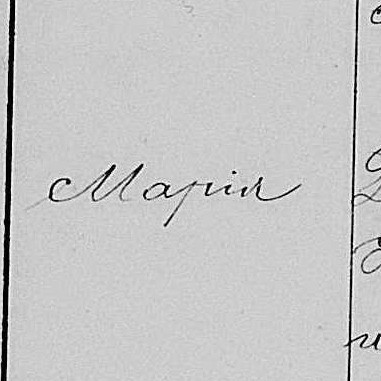 Марія